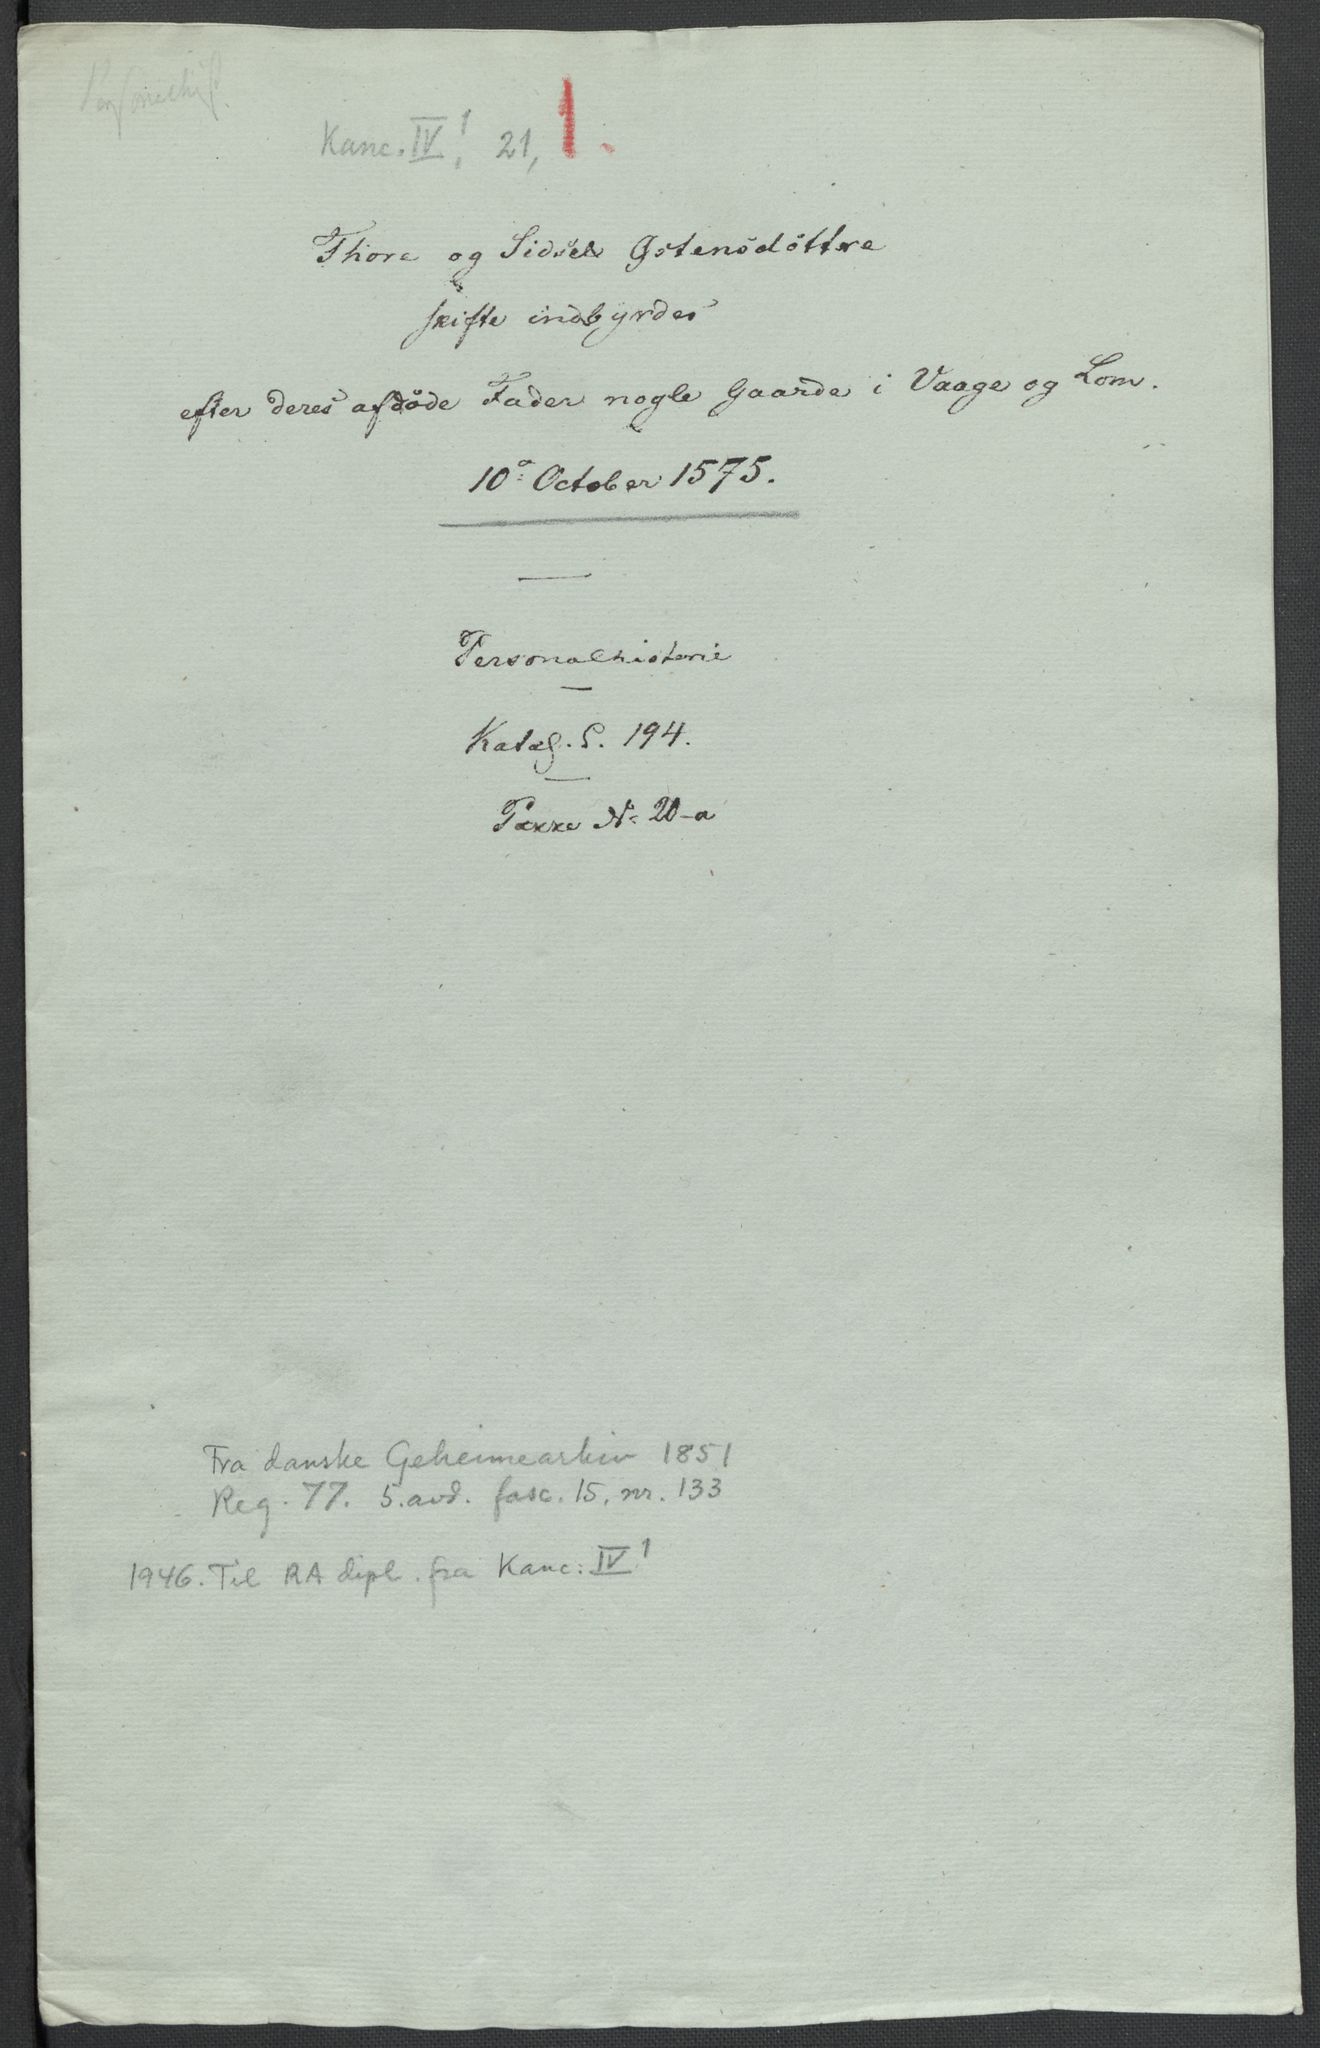 Personalhist.
Kanc. IV,¹ 21, 1.
Thore og Sidsel Østensdöttre
skifte indbyrdes
efter deres afdöde Fader nogle Gaarde i Vaage og Lom.
10ᵒ October 1575.
Personalhistorie
Katal. S. 194.
Pakke Nᵒ 20-a
Fra danske Geheimearkiv 1851
Reg. 77. 5. avd. fasc. 15, nr. 133
1946. Til RA dipl. fra Kanc: IV.¹